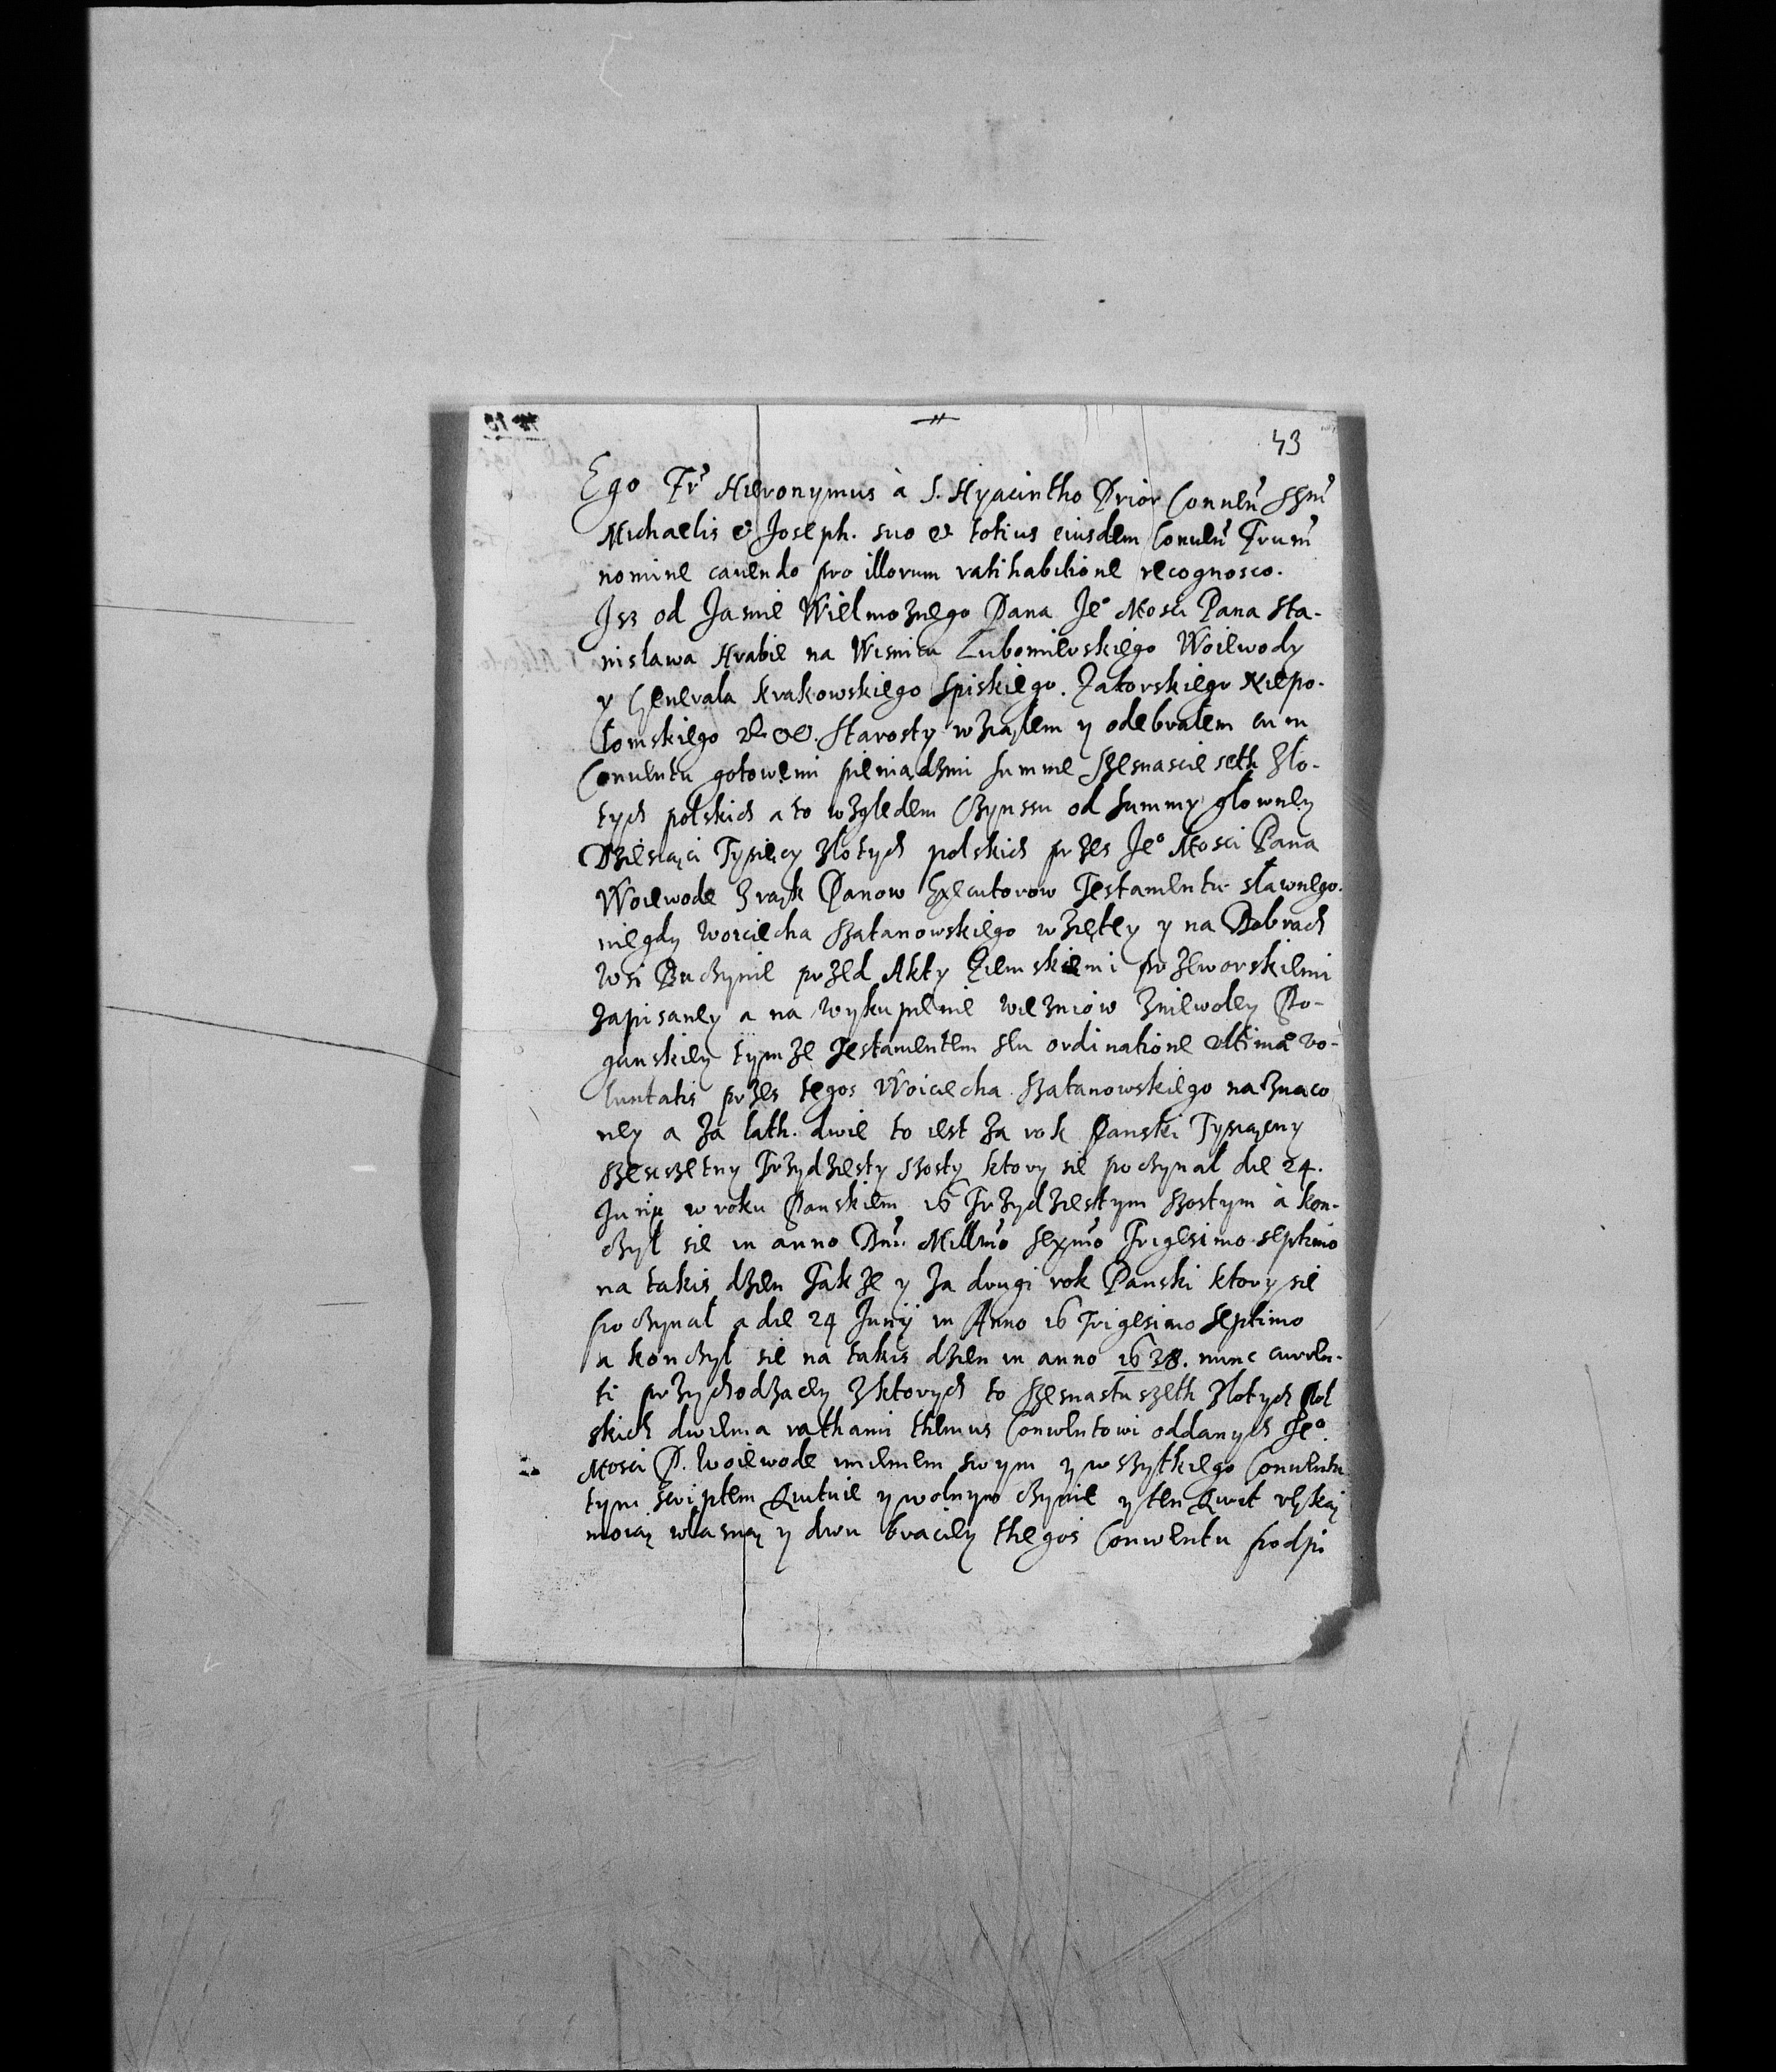 43
Ego Fr̃ Hieronymus à S. Hyacintho Prior Conuen̄ SSm̄
Michaelis et Joseph. suo et totius eiusdem Conuen̄ Frum̄
nomine cauendo pro illorum ratihabitione recognosco.
Jsz od Jasnie Wielmożnego Pana Jeº Mosci Pana Sta-
nisława Hrabie na Wisniczu Lubomierskiego Woiewody
y Generała Krakowskiego Spiskiego. Zatorskiego Niepo-
łomskiego Starosty wziąłem y odebrałem cum
Conuentu gotowemi pieniądzmi summe Szesnascie seth Zło-
tych polskich a to względem Czynszu od Summy głowney
Dziesiąci Tysięcy złotych polskich przes Jeº Mosci Pana
Woiewode z rąk Panow Executorow Testamentu sławnego
niegdy Woiciecha Szatanowskiego wziętey y na Dobrach
Wsi Buczynie przed Akty Ziemskiemi przeworskiemi
zapisaney a na wykupienie wiezniow z niewoley Po-
ganskiey tymże Testamentem seu ordinatione ultimæ vo-
luntatis przes tegos Woiciecha Szatanowskiego naznaco
ney a za lath. dwie to iest za rok Panski Tysiączny
Szescsetny Trzydziesty Szosty ktory sie poczynal die 24.
Junij w roku Panskiem 16 Trzydziestym Szostym à kon-
czył sie in anno Dn̄i. Millm̄o Sexm̄o Trigesimo septimo
na takis dzien Takze y za drugi rok Panski ktory sie
poczynał a die 24 Junij in Anno 16 Trigesimo Septimo
a konczył sie na takis dzien in anno 1638. nunc curren-
ti przychodzacey z ktorych to Szesnastu szeth Złotych Pol
skich dwiema rathami themus Conwentowi oddanych Jeº.
Mosci P. Woiewode imieniem swym y wszytkiego Conuentu
tym Scriptem Quituie y wolnym czynie y ten Quit ręką
moią własną y dwu braciey thegos Conwentu podpi